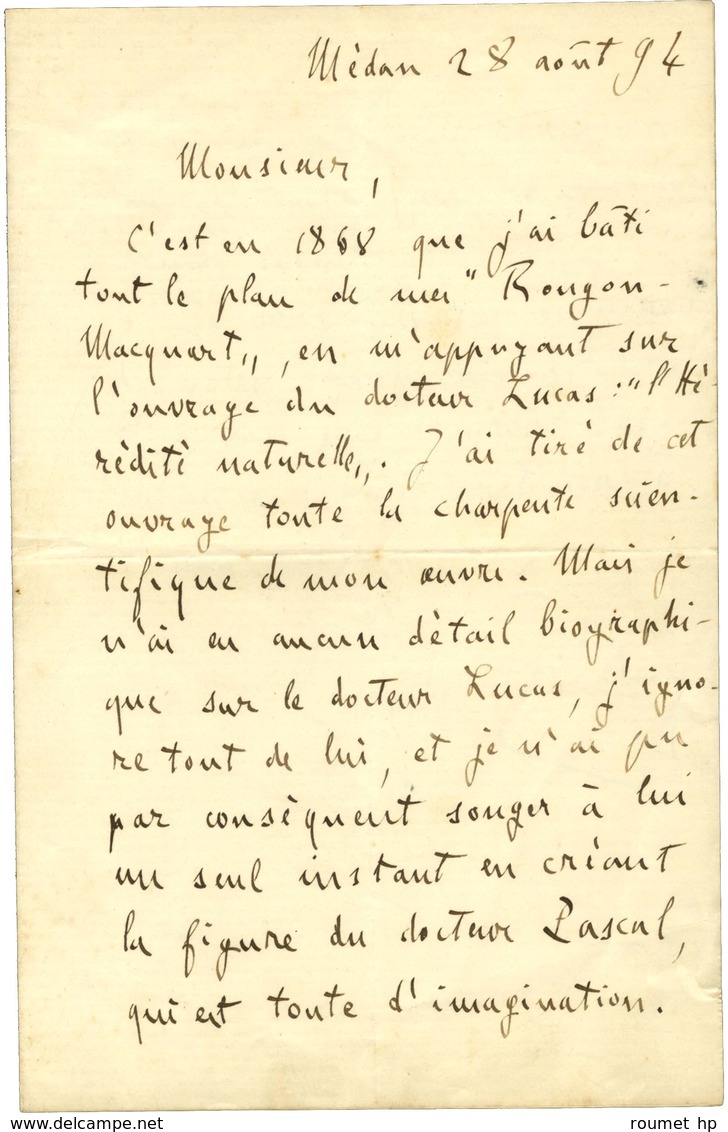 Médan 28 août 94
Monsieur,
C'est en 1868 que j'ai bâti
tout le plan de mes " Rougon-
Macquart ", en m'appuyant sur
l'ouvrage du docteur Lucas : " l'Hé-
rédité naturelle ". J'ai tiré de cet
ouvrage toute la charpente scien-
tifique de mon œuvre. Mais je
n'ai eu aucun détail biographi-
que sur le docteur Lucas, j'igno-
re tout de lui, et je n'ai pu
par conséquent songer à lui
un seul instant en créant
la figure du docteur Pascal,
qui est toute d'imagination.
delcampe.net
roumet hp